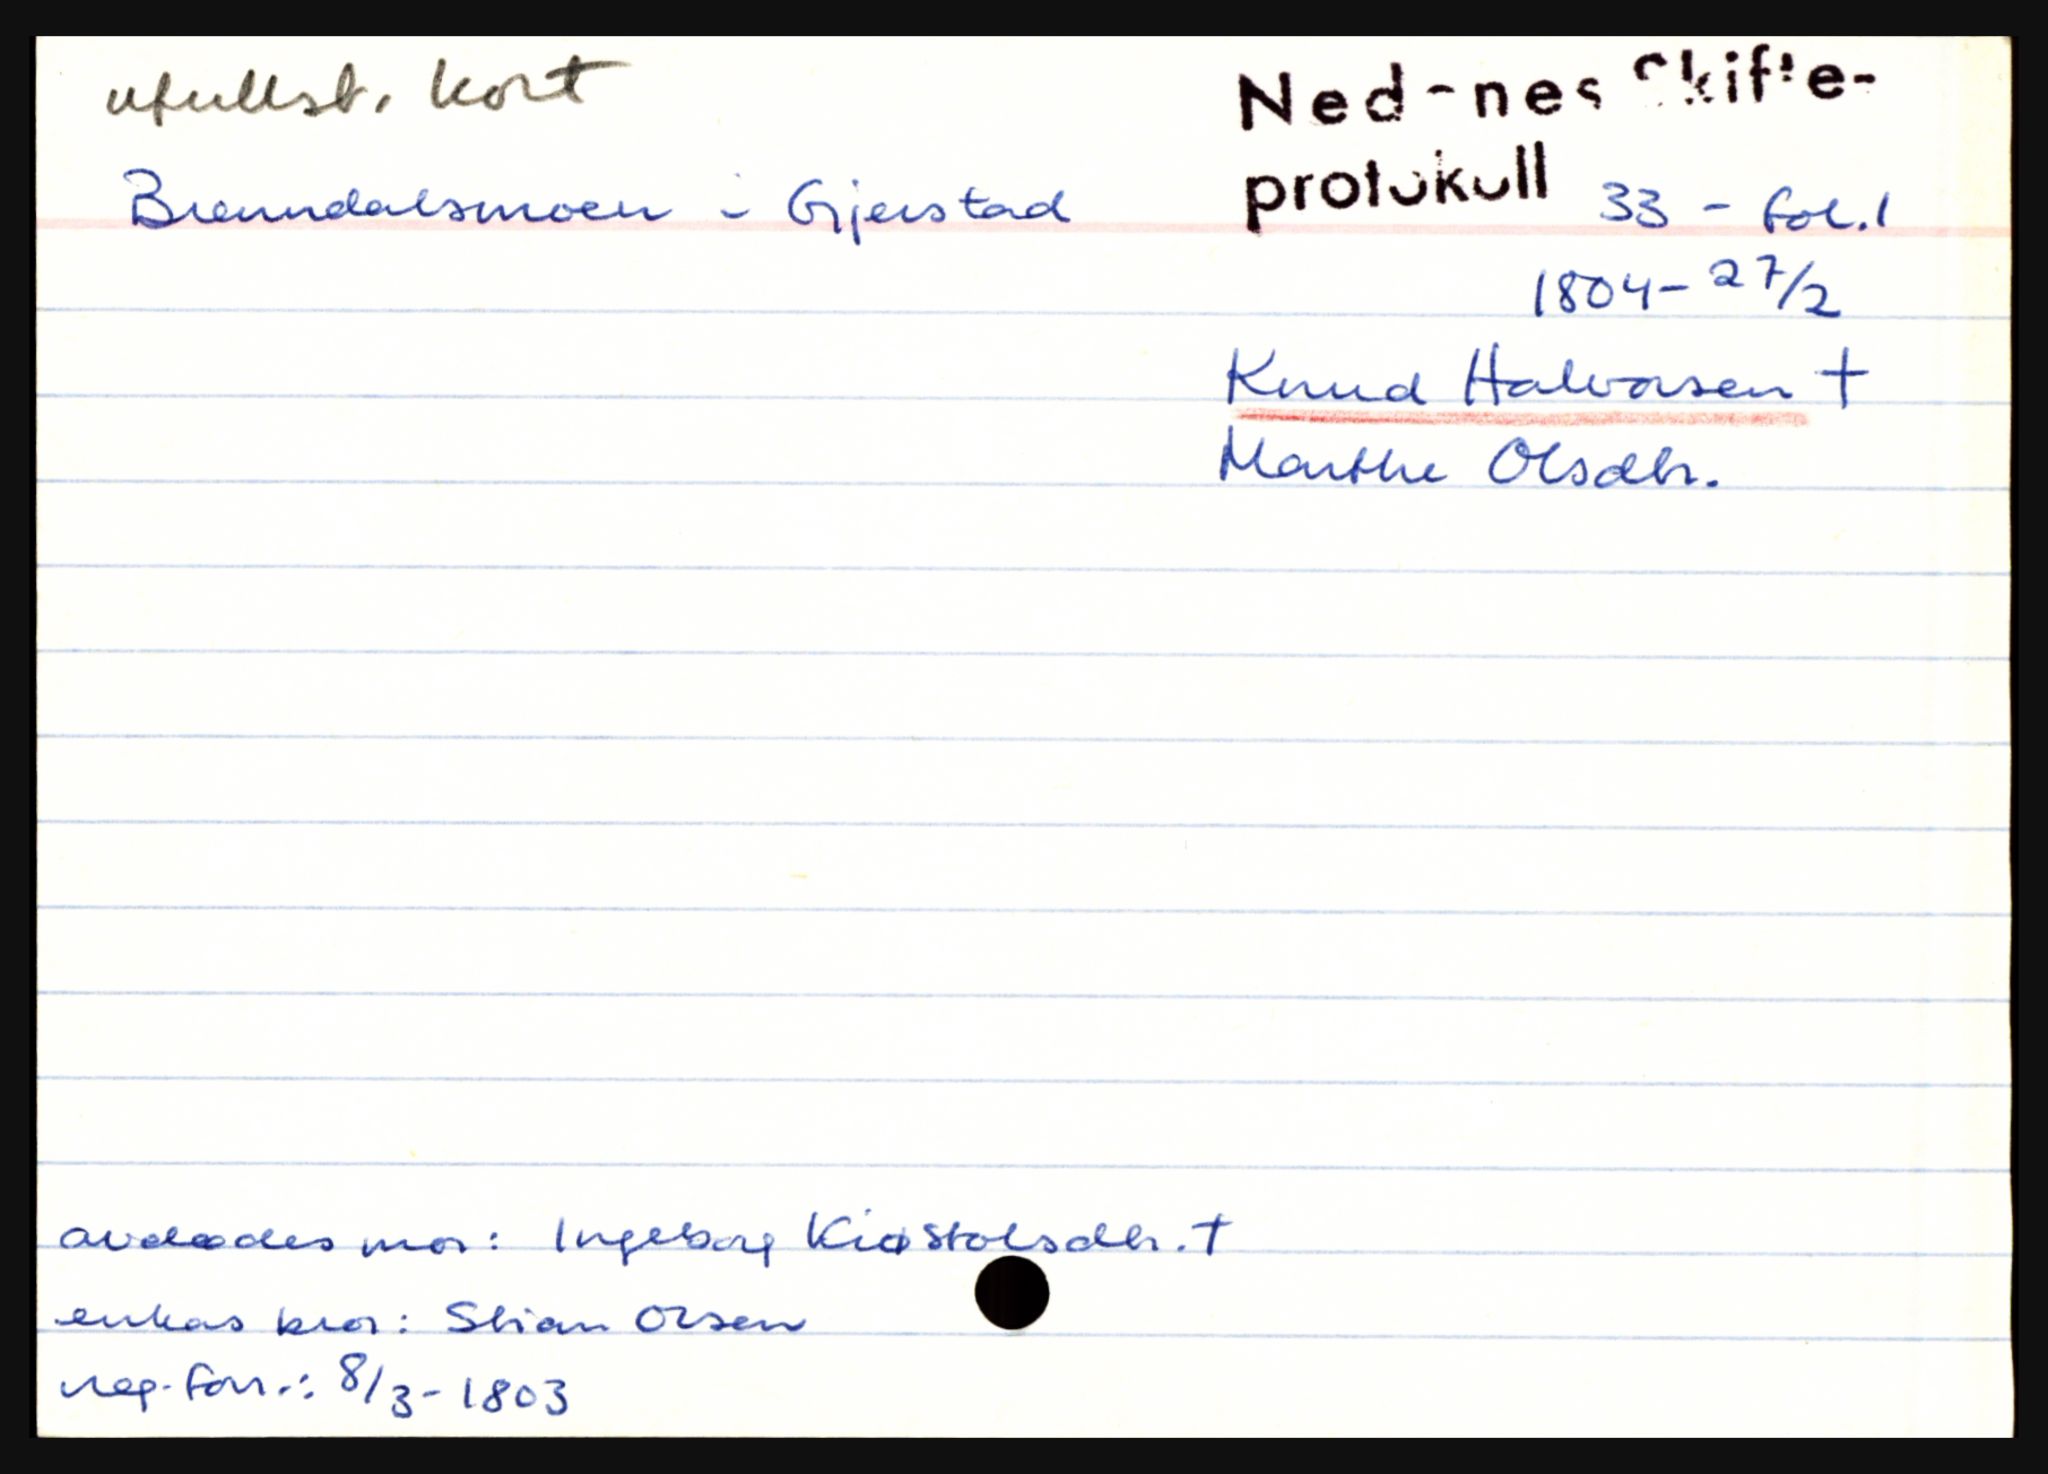 ufullst. kort
Nedenes Skifte-
protokoll 33 - fol.1
Brenndalsmoen i Gjerstad
1804 - 27/2
Knud Halvorsen †
Marthe Olsdtr.
avdødes mor: Ingeborg Kiøstolsdtr. †
enkas bror: Stian Olsen
reg.forr.: 8/3 - 1803